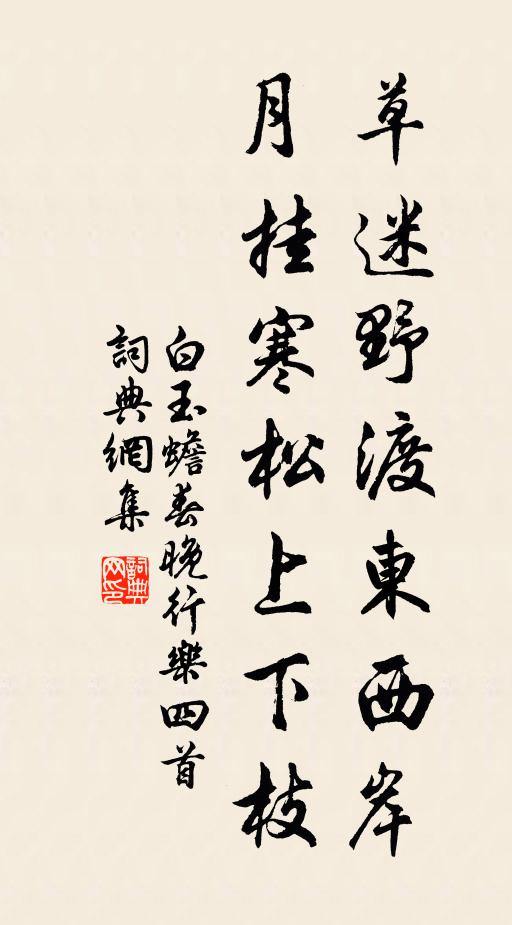 草迷野渡東西岸
月挂寒松上下枝
白玉蟾春晚行樂四首
詞典網集
詞典网印